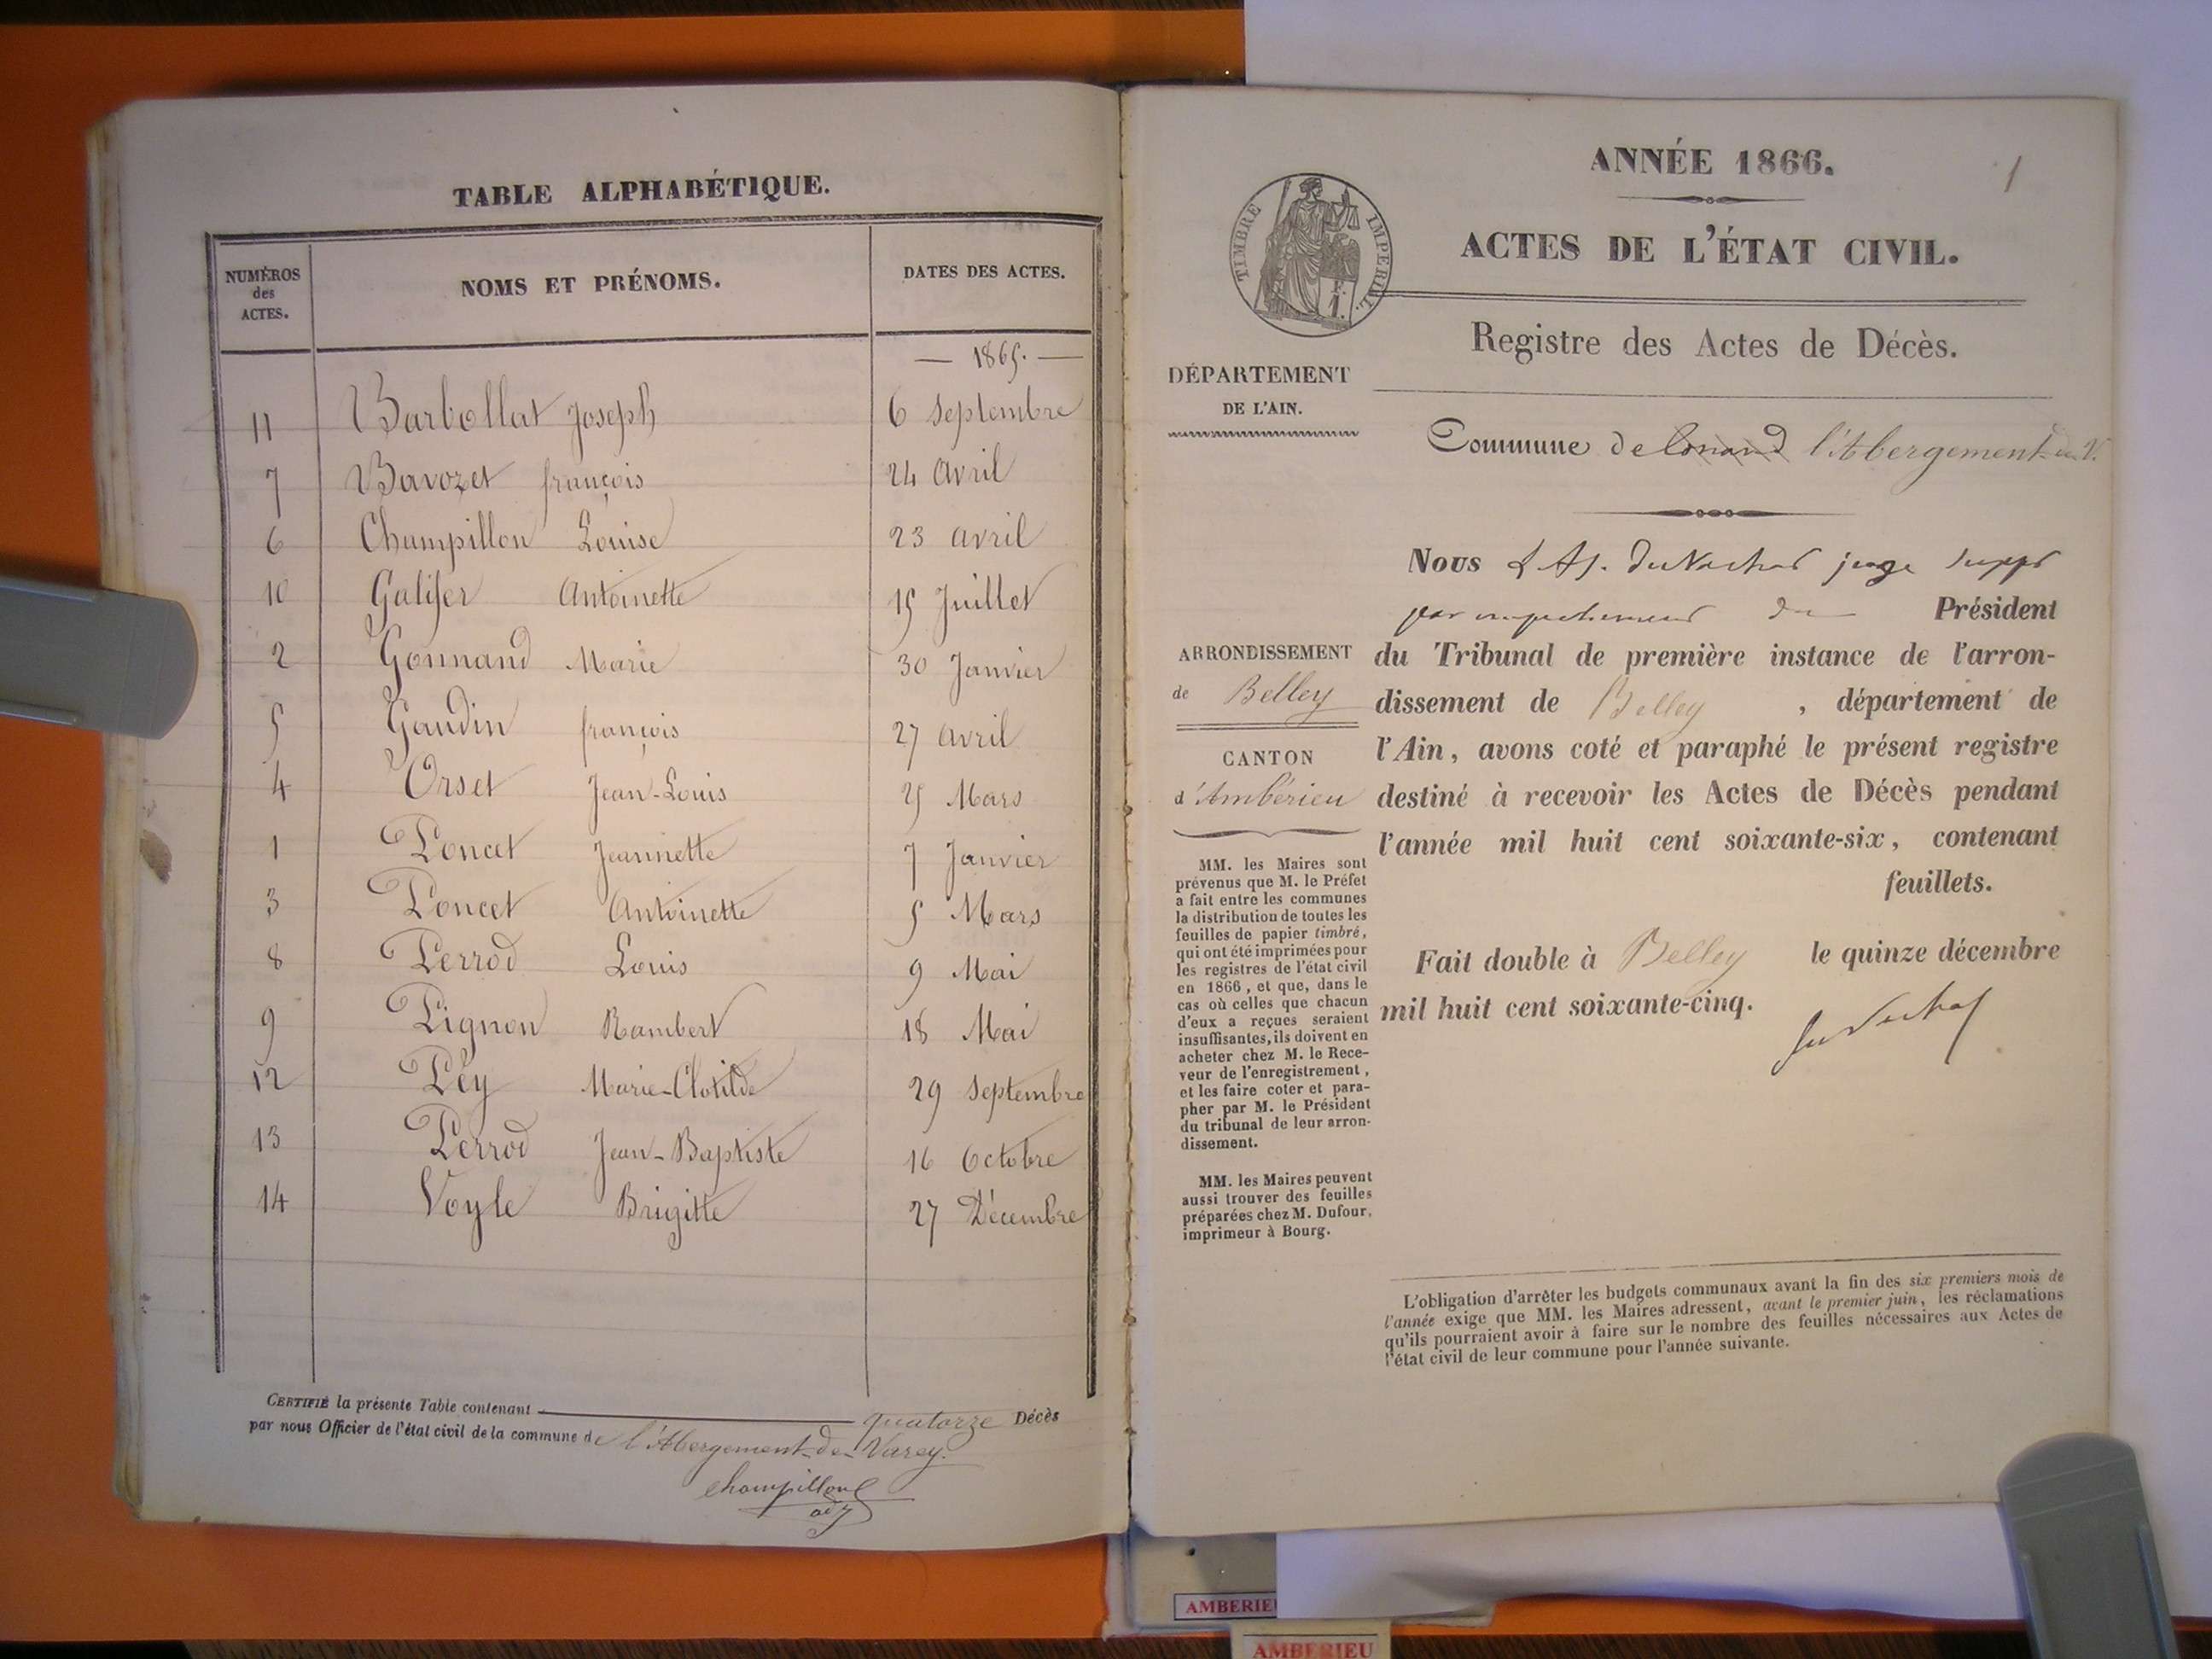 TABLE ALPHABÉTIQUE.
NUMÉROS des ACTES. NOMS ET PRÉNOMS. DATES DES ACTES.
— 1865. —
11 Barbollat Joseph 6 Septembre
7 Bavozet françois 24 Avril
6 Champillon Louise 23 avril
10 Galifer Antoinette 15 Juillet
2 Gonnand Marie 30 Janvier
5 Gaudin françois 27 avril
4 Orset Jean-Louis 25 Mars
1 Poncet Jeannette 7 Janvier
3 Poncet Antoinette 5 Mars
8 Perrod Louis 9 Mai
9 Pignon Rambert 18 Mai
12 Pey Marie-Clotilde 29 Septembre
13 Perrod Jean-Baptiste 16 Octobre
14 Voyle Brigitte 27 Décembre
CERTIFIÉ la présente Table contenant quatorze Décès
par nous Officier de l'état civil de la commune de l'Abergement-de-Varey.
Champillon
adj
1
ANNÉE 1866.
TIMBRE IMPERIAL.
ACTES DE L'ÉTAT CIVIL.
Registre des Actes de Décès.
DÉPARTEMENT
DE L'AIN.
Commune de l'Abergement-de V.
ARRONDISSEMENT
de Belley
CANTON
d'Ambérieu
MM. les Maires sont
prévenus que M. le Préfet
a fait entre les communes
la distribution de toutes les
feuilles de papier timbré,
qui ont été imprimées pour
les registres de l'état civil
en 1866, et que, dans le
cas où celles que chacun
d'eux a reçues seraient
insuffisantes, ils doivent en
acheter chez M. le Rece-
veur de l'enregistrement,
et les faire coter et para-
pher par M. le Président
du tribunal de leur arron-
dissement.
MM. les Maires peuvent
aussi trouver des feuilles
préparées chez M. Dufour,
imprimeur à Bourg.
Nous juge suppt
par empechement du Président
du Tribunal de première instance de l'arron-
dissement de Belley, département de
l'Ain, avons coté et paraphé le présent registre
destiné à recevoir les Actes de Décès pendant
l'année mil huit cent soixante-six, contenant
feuillets.
Fait double à Belley le quinze décembre
mil huit cent soixante-cinq.
L'obligation d'arrêter les budgets communaux avant la fin des six premiers mois de
l'année exige que MM. les Maires adressent, avant le premier juin, les réclamations
qu'ils pourraient avoir à faire sur le nombre des feuilles nécessaires aux Actes de
l'état civil de leur commune pour l'année suivante.
AMBERIE
AMBERIEU